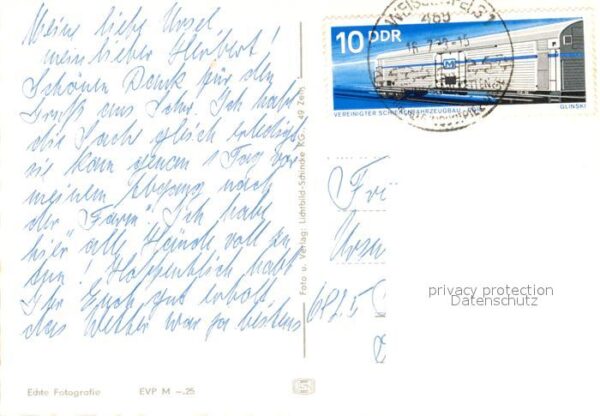 Meine liebe Ursel,
mein lieber Herbert!
Schönen Dank für den
Gruß aus Ich habe
die Sache gleich erledigt,
sie kam genau 1 Tag vor
meinem nach
der "Farm". Ich habe
hier alle Hände voll zu
tun! Hoffentlich habt
Ihr Euch gut erholt
das Wetter war ja bestens
10 DDR
VEREINIGTER SCHIENENFAHRZEUGBAU
GLINSKI
WEISSENFELS 1
Foto u. Verlag: Lichtbild-Schincke KG., 49 Zeitz
Fr
Ursu
privacy protection
Datenschutz
Echte Fotografie EVP M -.25